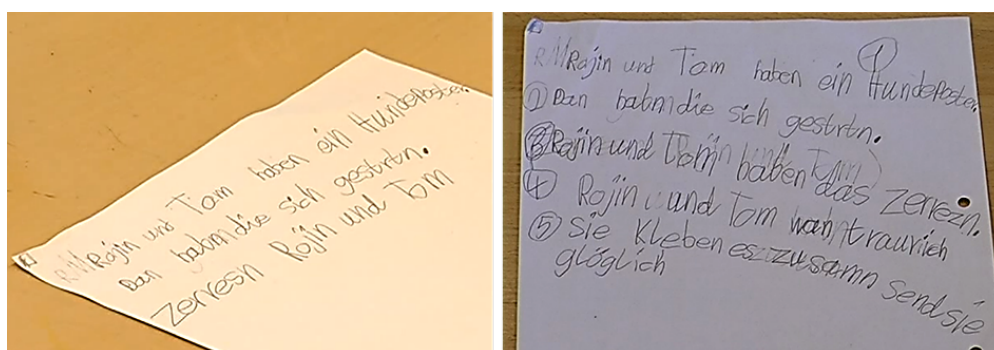 Rajin und Tom haben ein Hundeposter.
Dan habm die sich gestrtn.
Zerresn Rojin und Tom
Rajin und Tom haben ein Hundeposter.
① Dan habm die sich gestrtn.
③ Rojin und Tom haben das zerrezn.
④ Rojin und Tom wahn traurich
⑤ Sie Kleben es zusamn send sie
glöglich